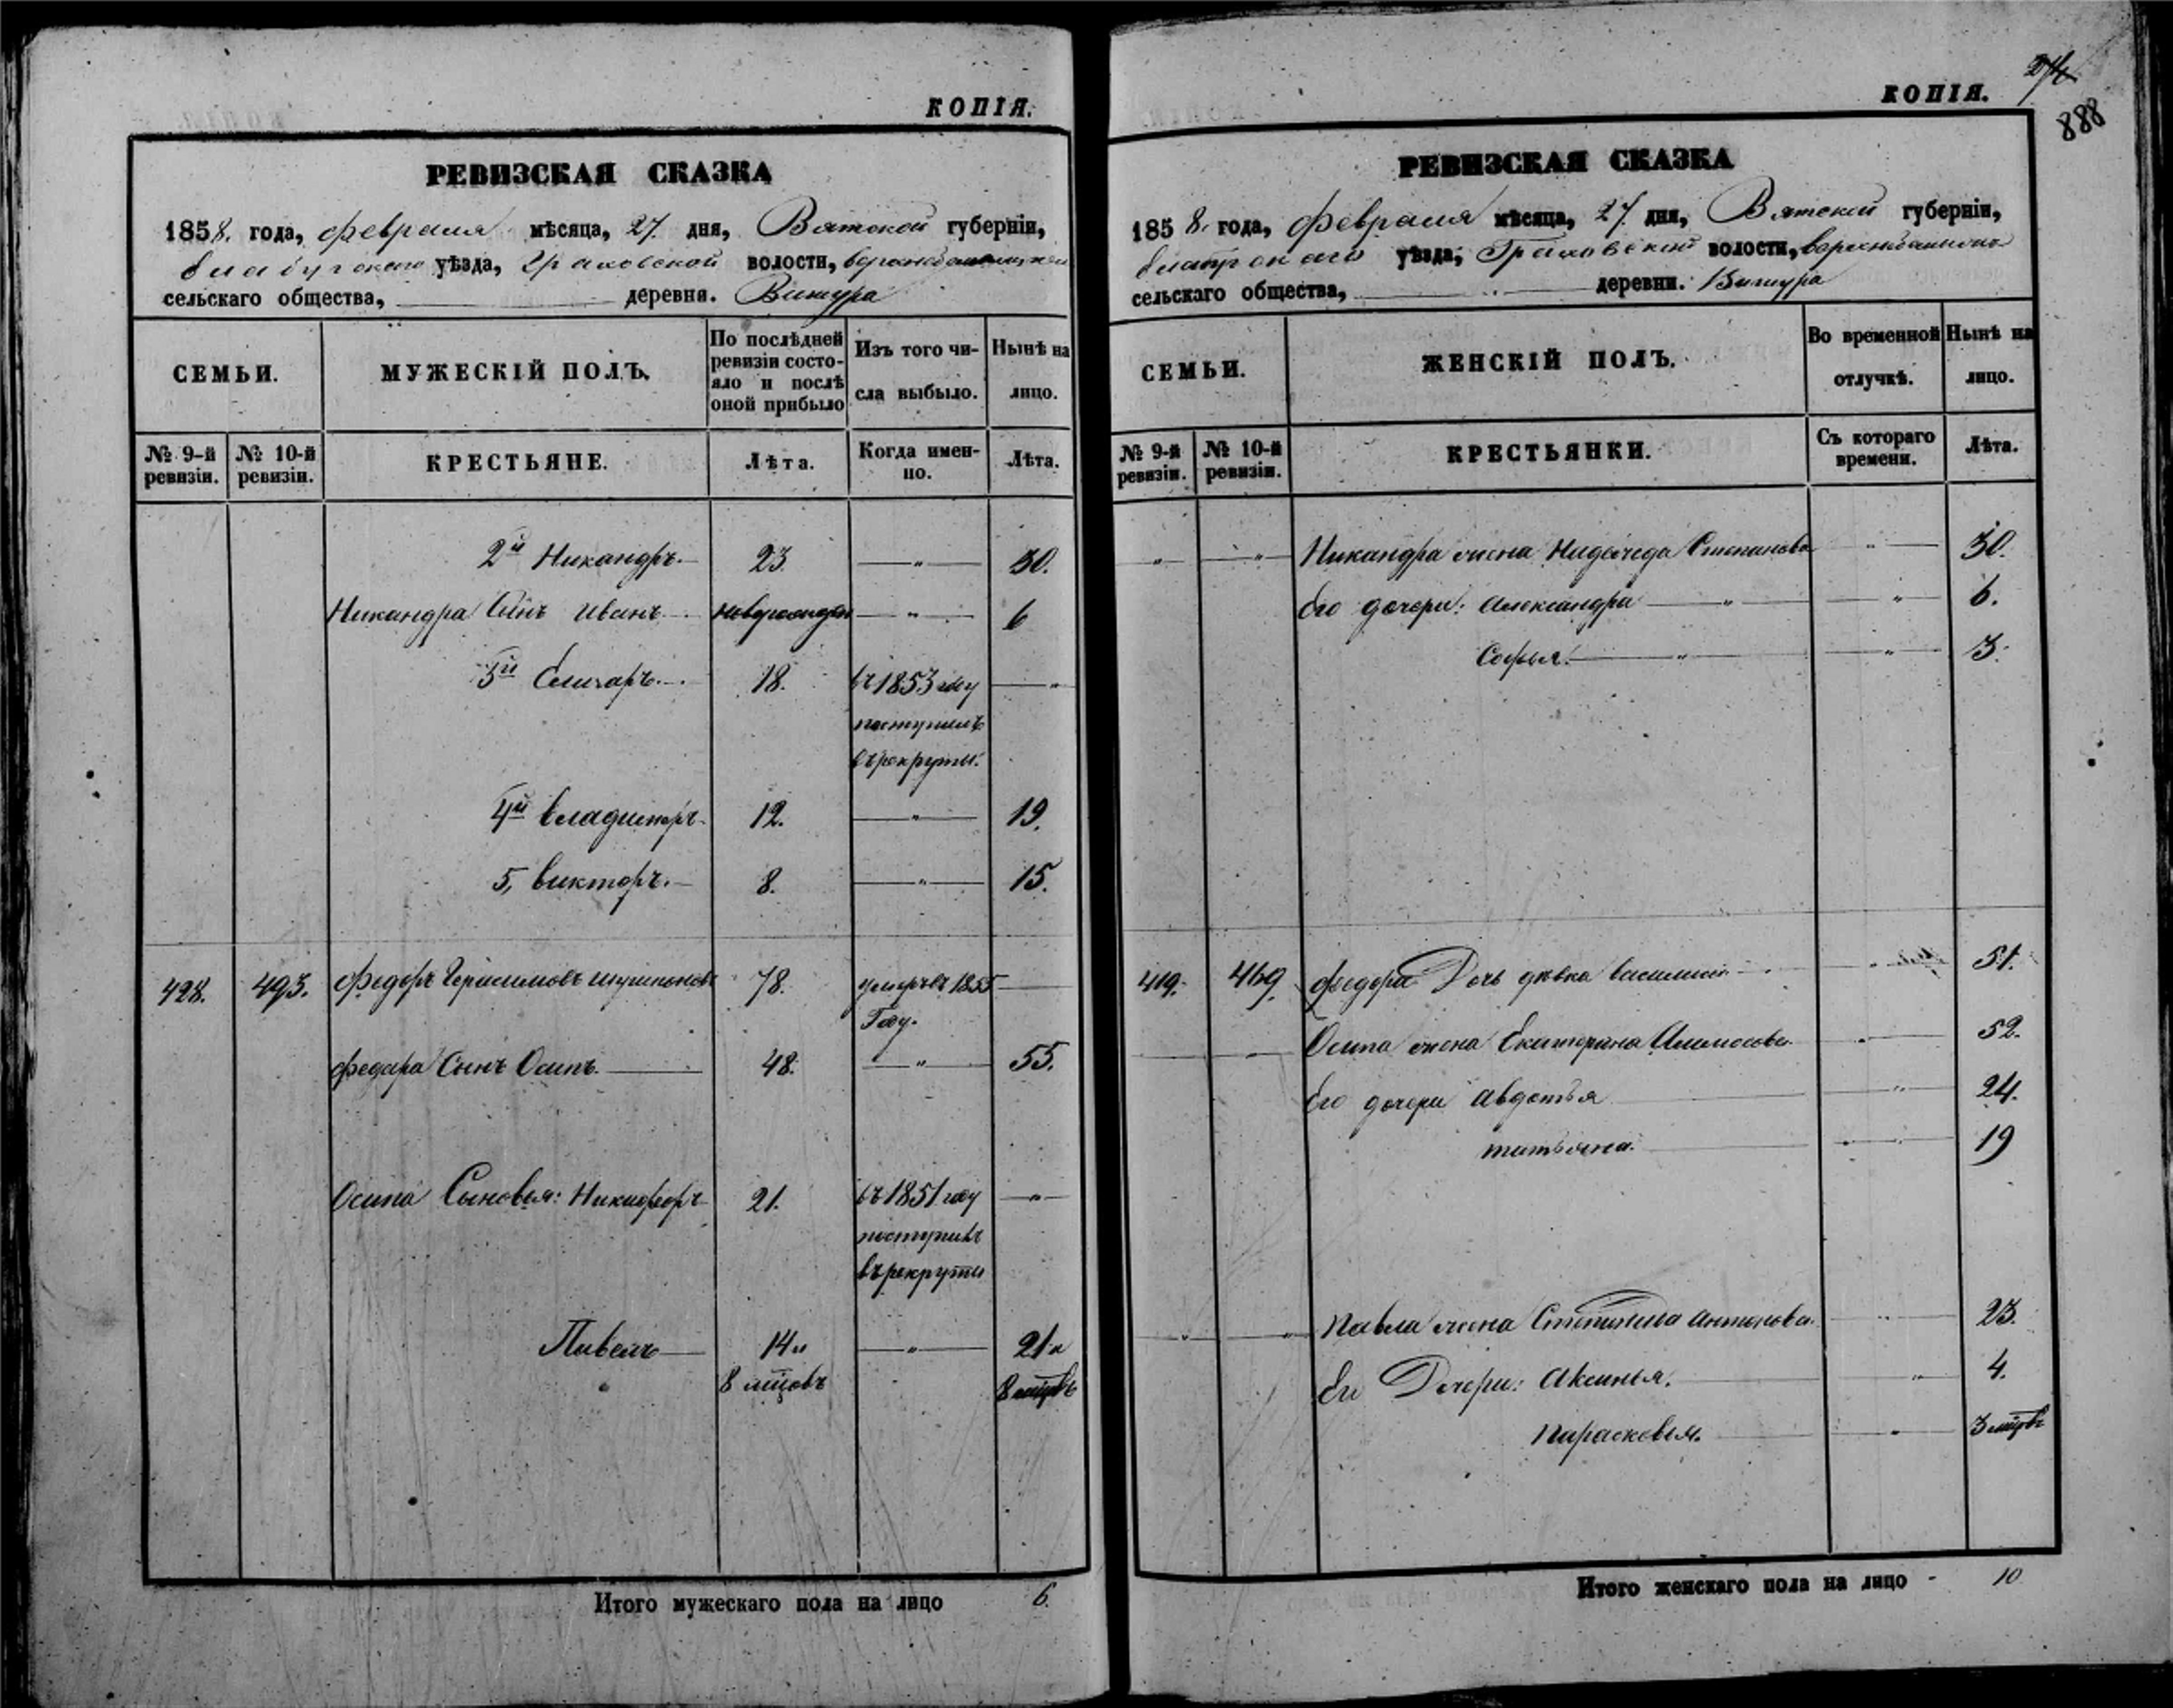 КОПІЯ.
РЕВИЗСКАЯ СКАЗКА
1858. года, февраля мѣсяца, 27. дня, Вятской губерніи,
Елабугскаго уѣзда, Граховской волости,
сельскаго общества, деревня. Вишура
СЕМЬИ.
МУЖЕСКІЙ ПОЛЪ.
По послѣдней ревизіи состояло и послѣ оной прибыло
Изъ того числа выбыло.
Нынѣ на лицо.
№ 9-й ревизіи.
№ 10-й ревизіи.
КРЕСТЬЯНЕ.
Лѣта.
Когда именно.
Лѣта.
2й Никандръ. 23 " 30.
Никандра Сынъ Иванъ новорожден " 6
3й 18. въ 1853 году "
поступилъ
въ рекруты.
4й Владимиръ 12. " 19.
5, Викторъ. 8. " 15.
428. 493. Федоръ Герасимовъ 78. умеръ въ 1855
Году.
Федора Сынъ Осипъ. 48. " 55.
Осипа Сыновья: Никифоръ 21. въ 1851 году "
поступилъ
въ рекруты
Павелъ 14 и " 21 и
8 мцовъ 8 мцовъ
Итого мужескаго пола на лицо 6.
КОПІЯ.
274
888
РЕВИЗСКАЯ СКАЗКА
1858. года, февраля мѣсяца, 27. дня, Вятской губерніи,
уѣзда, Граховской волости,
сельскаго общества, деревни. Вишура
СЕМЬИ.
ЖЕНСКІЙ ПОЛЪ.
Во временной отлучкѣ.
Нынѣ на лицо.
№ 9-й ревизіи.
№ 10-й ревизіи.
КРЕСТЬЯНКИ.
Съ котораго времени.
Лѣта.
" " Никандра жена Надежда Степанова " 30.
Его дочери: Александра " " 6.
Софья. " " 3.
419. 469. Федора Дочь дѣвка " 51.
Осипа жена Екатерина " 52.
Его дочери Авдотья " 24.
татьяна. " 19
" " Павла жена Антонова. " 23.
Ея Дочери: Аксинья. " 4.
Парасковья. " 3 мцовъ
Итого женскаго пола на лицо - 10